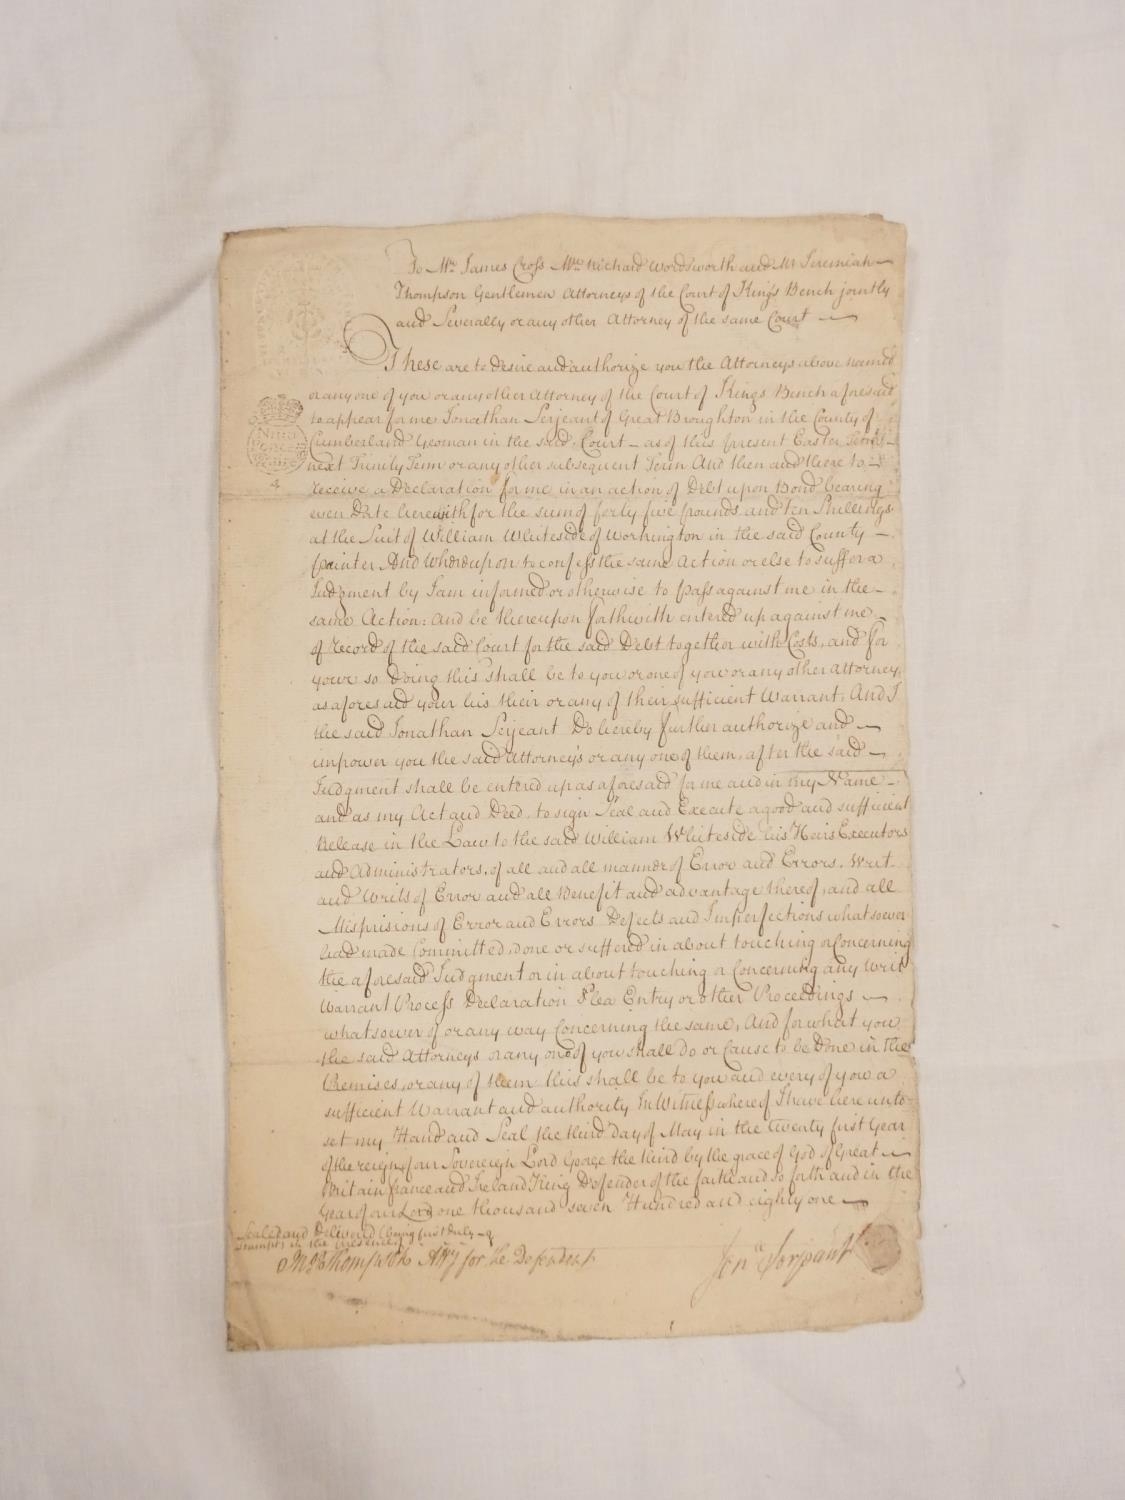 To Mr. James Cross Mr. Richard Wordsworth and Mr Jeremiah
Thompson Gentlemen Attorneys of the Court of Kings Bench jointly
and Severally or any other Attorney of the same Court
These are to desire and authorize you the Attorneys above named
or any one of you or any other Attorney of the Court of Kings Bench aforesaid
to appear for me Jonathan Serjeant of Great Broughton in the County of
Cumberland Yeoman in the said Court as of this present Easter Term
next Trinity Term or any other subsequent Term And then and there to
receive a Declaration for me in an action of Debt upon Bond bearing
even Date herewith for the sum of forty five pounds and Ten Shillings
at the Suit of William Whiteside of Workington in the said County
painter And whereupon to confess the same Action or else to suffer a
Judgment by I am informed or otherwise to pass against me in the
same Action: And be thereupon forthwith entered up against me
of Record of the said Court for the said Debt together with Costs, and for
your so Doing this shall be to you or one of you or any other Attorney
as aforesaid your his their or any of their sufficient Warrant. And I
the said Jonathan Serjeant Do hereby further authorize and
impower you the said Attorneys or any one of them, after the said
Judgment shall be entered up as aforesaid for me and in my Name
and as my Act and Deed, to sign Seal and Execute a good and sufficient
Release in the Law to the said William Whiteside his Heirs Executors
and Administrators, of all and all manner of Error and Errors, Writ
and Writs of Error and all Benefit and advantage thereof, and all
Misprisions of Error and Errors Defects and Imperfections whatsoever
had made Committed, done or suffered in about touching or Concerning
the aforesaid Judgment or in about touching or Concerning any Writ
Warrant Process Declaration Plea Entry or other Proceedings
whatsoever of or any way Concerning the same, And for what you
the said Attorneys or any one of you shall do or Cause to be Done in the
Premises, or any of them this shall be to you and every of you a
sufficient Warrant and authority In Witness whereof I have hereunto
set my Hand and Seal the third Day of May in the twenty first Year
of the reign of our Sovereign Lord George the third by the grace of God of Great
Britain france and Ireland King Defender of the faith and so forth and in the
Year of our Lord one thousand seven Hundred and eighty one
Sealed and Delivered (being first duly
stampt) in the presence of
Thompson Atty for the Defendant
Jonn. Serjeant